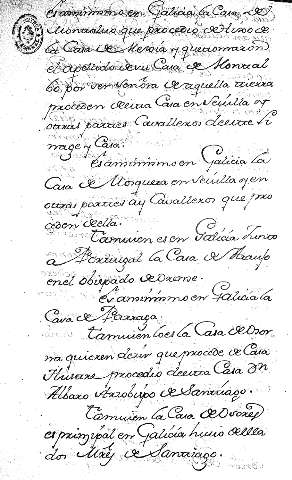 es asimismo en Galicia la Casa de
Monrralvo que procedio de Uno de
la Casa de y quetomaron
el apellido de su Casa de Monrral
bo por ser Señora de aquella tierra
proceden de esta Casa en Sevilla y
otras partes Cavalleros deeste Li
nage y Casa.
Es asimismo en Galicia la
Casa de Mosquera en Sevilla y en
otras partes ay Cavalleros que pro
ceden de ella.
Tamvien es en Galicia Junto
a Portugal la Casa de Araujo
en el obispado de Orense.
Es asimismo en Galicia la
Casa de Parraga.
Tamvien lo es la Casa de
na quieren decir que procede de Casa
Ilustre procedio de esta Casa Dn
Albaro Arzobispo de Santiago.
Tamvien la Casa de
es principal en Galicia huvo de ella
dos Mres de Santiago.